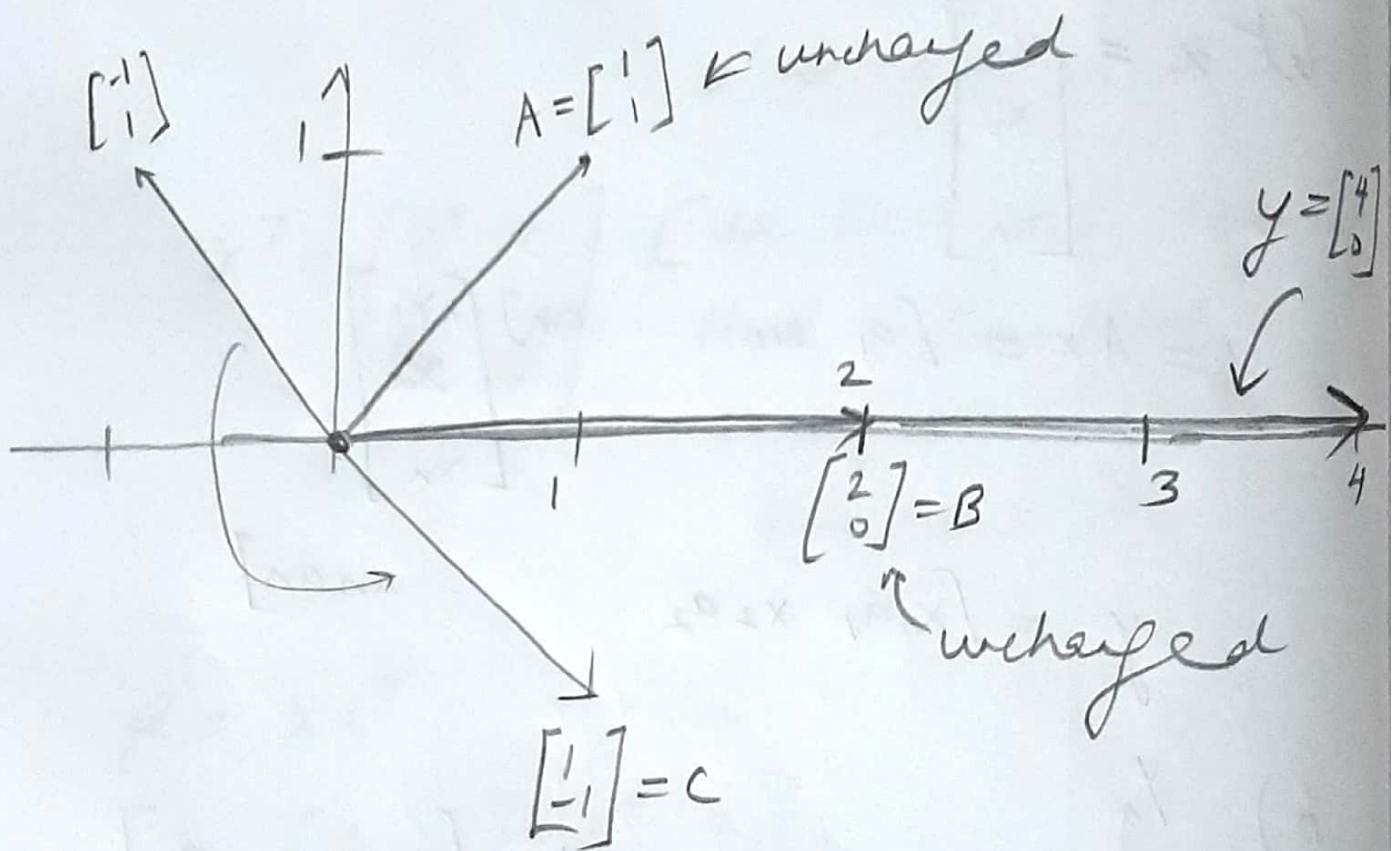 [-1 1]
1
A = [1 1] ← unchanged
y = [4 0]
2
1
3
4
[2 0] = B
unchanged
[1 -1] = C